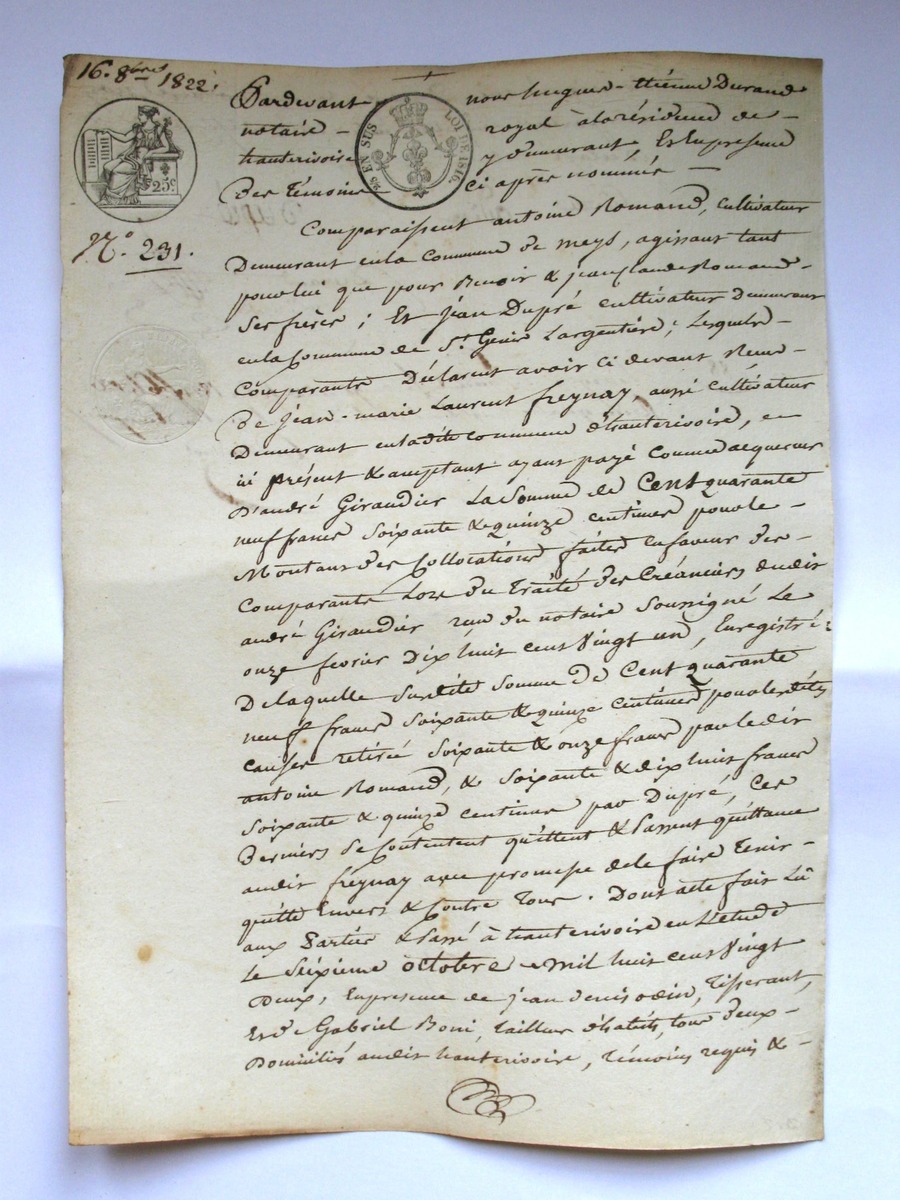 16. 8bre 1822.
Pardevant nous hugues-étiénne Durand
notaire - royal à la résidence de -
hauterivoire y demeurant, Et En presence
Des témoins ci après nommés -
25 c
25 EN SUS LOI DE 1816.
N.° 231.
Comparaissent antoine Romand, cultivateur
Demeurant en la Commune de meys, agissant tant
pour lui que pour Benoit & jean claude Romand -
Ses frères; Et Jéan Dupré cultivateur demeurant
en la Commune de St. Genis Largentière; Lesquels -
Comparants Déclarent avoir ci devant Reçu -
De Jéan-marie Laurent freynay, aussi Cultivateur
Demeurant en ladite commune d'hauterivoire, &
ici présent & acceptant ayant payé Comme acquereur
D'andré Giraudier La Somme de Cent quarante
neuf francs Soixante & quinze centimes pour le -
Montant des Collocations faites en faveur des -
Comparants Lors du Traité des Créanciers dudit
andré Giraudier reçu du notaire Soussigné Le
onze fevrier Dix huit cent Vingt un, Enregistré:
De laquelle Susdite Somme de Cent quarante
neuf francs Soixante & quinze centimes pour les dites
causes retirée Soixante & onze francs par ledit
antoine Romand, & Soixante & dix huit francs
Soixante & quinze centimes par Dupré, Ces
Derniers Se Contentent quittent & Passent quittance
audit freynay avec promesse de le faire Tenir -
quitte Envers & Contre Tous. Dont acte fait Lû
aux Parties & Passé à hauterivoire en L'étude
Le Seixième octobre mil huit cent Vingt
Deux, En presence de jean denis odin, Tisserant,
Et de Gabriel Boni, tailleur d'habits, tous deux -
Domiciliés audit hauterivoire, Témoins requis & -